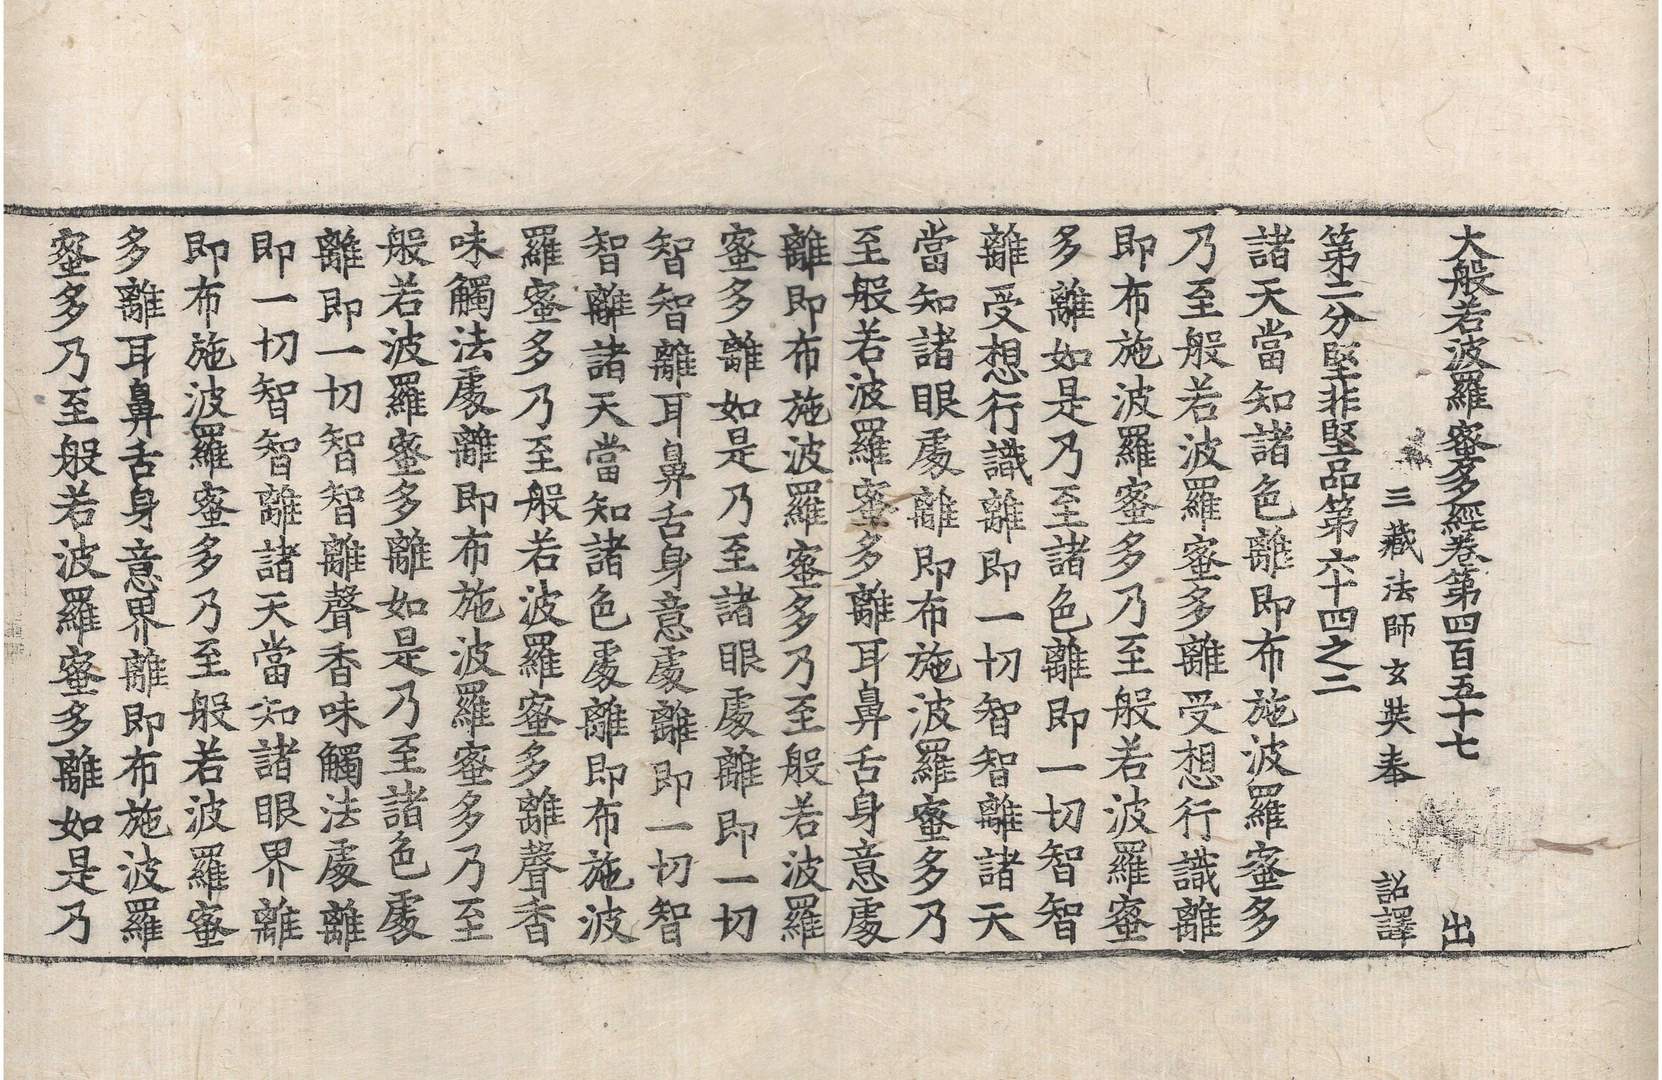 大般若波羅蜜多經卷第四百五十七 出
三藏法師玄奘奉 詔譯
第二分堅非堅品第六十四之二
諸天當知諸色離即布施波羅蜜多
乃至般若波羅蜜多離受想行識離
即布施波羅蜜多乃至般若波羅蜜
多離如是乃至諸色離即一切智智
離受想行識離即一切智智離諸天
當知諸眼處離即布施波羅蜜多乃
至般若波羅蜜多離耳鼻舌身意處
離即布施波羅蜜多乃至般若波羅
蜜多離如是乃至諸眼處離即一切
智智離耳鼻舌身意處離即一切智
智離諸天當知諸色處離即布施波
羅蜜多乃至般若波羅蜜多離聲香
味觸法處離即布施波羅蜜多乃至
般若波羅蜜多離如是乃至諸色處
離即一切智智離聲香味觸法處離
即一切智智離諸天當知諸眼界離
即布施波羅蜜多乃至般若波羅蜜
多離耳鼻舌身意界離即布施波羅
蜜多乃至般若波羅蜜多離如是乃